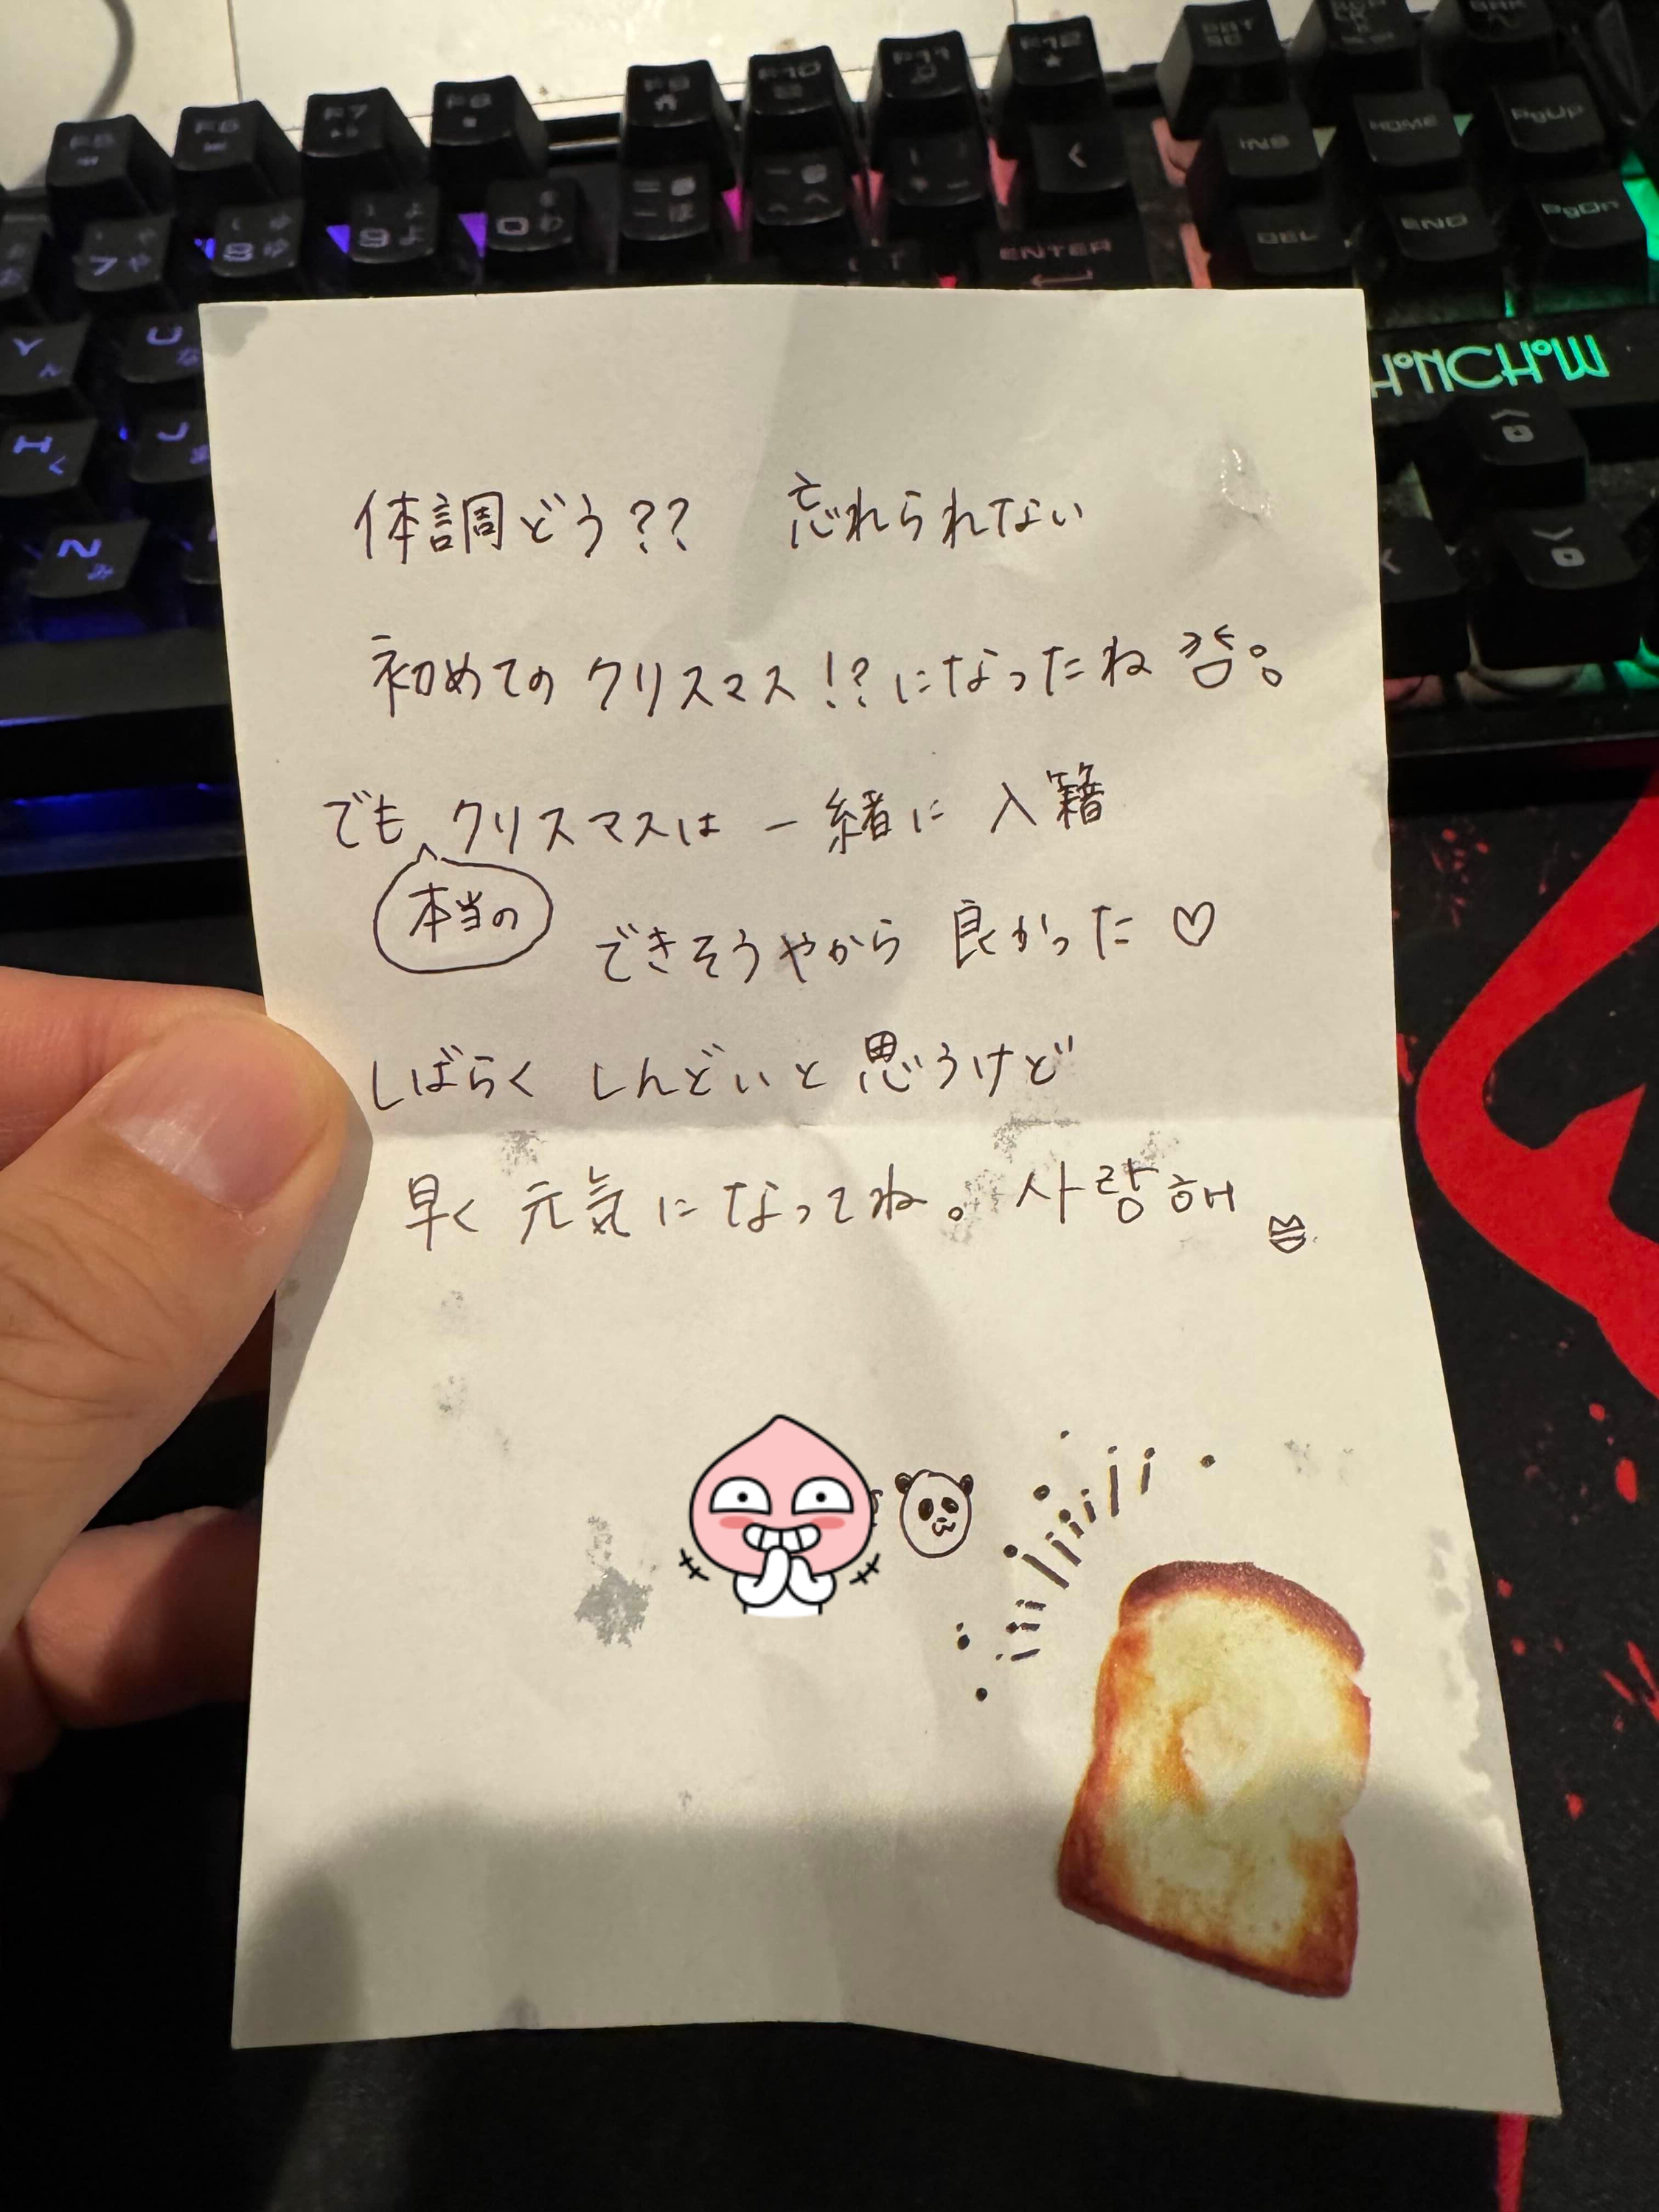 F5
F6
F7
F8
F9
F10
F11
F12
INS
HOME
PgUp
7 や
8 ゆ
9 よ
0 わ
DEL
END
PgDn
ENTER
Y ん
U な
H く
J
N み
体調どう?? 忘れられない
初めてのクリスマス!?になったね
でも クリスマスは一緒に入籍
本当の
できそうやから良かった♡
しばらくしんどいと思うけど
早く元気になってね。사랑해